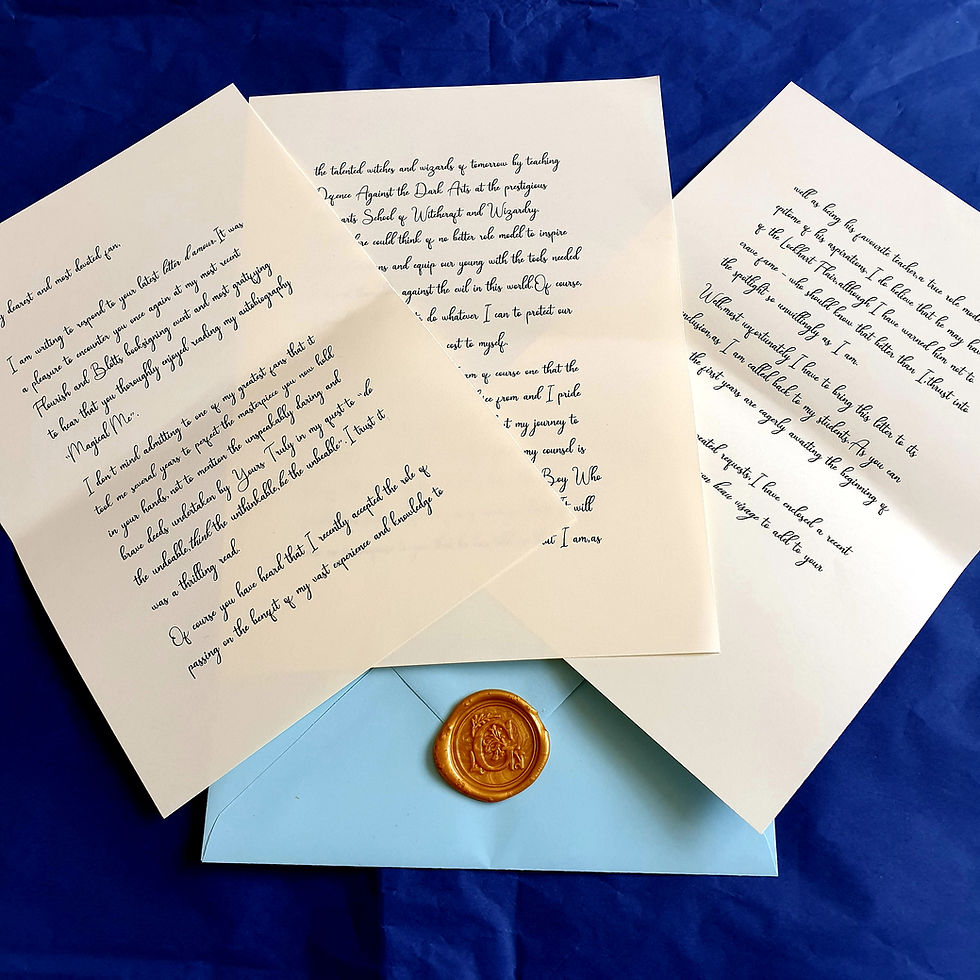 dearest and most devoted fan,
I am writing to respond to your latest letter d'amour. It was
a pleasure to encounter you once again at my most recent
Flourish and Blotts booksigning event and most gratifying
to hear that you thoroughly enjoyed reading my autobiography
"Magical Me".
I don't mind admitting to one of my greatest fans that it
took me several years to perfect the masterpiece you now hold
in your hands, not to mention the unspeakably daring and
brave deeds undertaken by Yours Truly in my quest to "do
the undoable, think the unthinkable, be the unbeable". I trust it
was a thrilling read.
Of course you have heard that I recently accepted the role of
passing on the benefit of my vast experience and knowledge to
the talented witches and wizards of tomorrow by teaching
Defence Against the Dark Arts at the prestigious
arts School of Witchcraft and Wizardry.
ere could think of no better role model to inspire
ns and equip our young with the tools needed
against the evil in this world. Of course,
to do whatever I can to protect our
cost to myself.
rm of course one that the
ce from and I pride
t my journey to
my counsel is
Boy Who
will
ut I am, as
well as being his favourite teacher, a true role mode
epitome of his aspirations. I do believe that he may ha
of the Lockhart Flair, although I have warned him not to
crave fame - who should know that better than I, thrust into
the spotlight so unwillingly as I am.
Well, most unfortunately I have to bring this letter to its
clusion, as I am called back to my students. As you can
the first years are eagerly awaiting the beginning of
eated requests, I have enclosed a recent
usage to add to your